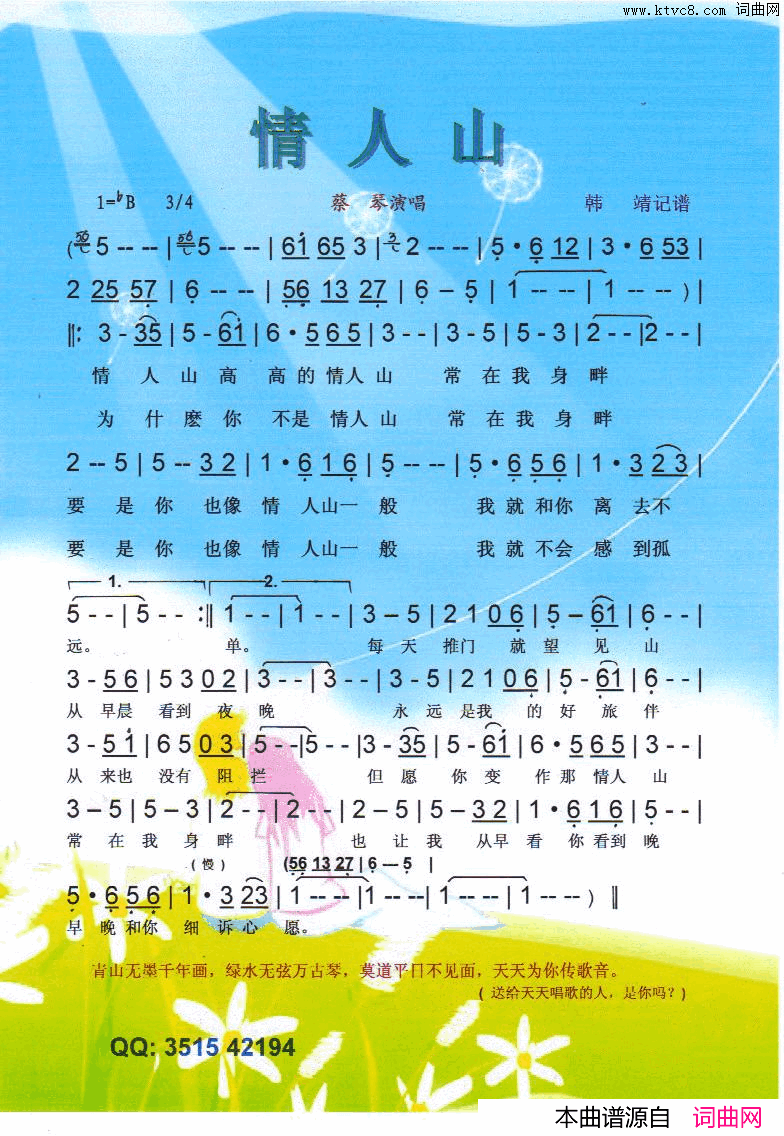 www.ktvc8.com 词曲网
情人山
1=♭B 3/4 蔡 琴演唱 韩 靖记谱
(5 -- -- | 5 -- -- | 61 65 3 | 2 -- -- | 5 · 6 12 | 3 · 6 53 |
2 25 57 | 6 -- -- | 56 13 27 | 6 – 5 | 1 -- -- | 1 -- -- ) |
‖: 3 - 35 | 5 - 61 | 6 · 5 65 | 3 - - | 3 - 5 | 5 - 3 | 2 - - | 2 - - |
情 人 山 高 高 的 情人 山 常 在 我 身 畔
为 什 麽 你 不 是 情人 山 常 在 我 身 畔
2 -- 5 | 5 -- 32 | 1 · 6 16 | 5 -- -- | 5 · 6 56 | 1 · 3 23 |
要 是 你 也像 情 人山一 般 我 就 和你 离 去不
要 是 你 也像 情 人山一 般 我 就 不会 感 到孤
1. 2.
5 - - | 5 - - :‖ 1 - - | 1 - - | 3 – 5 | 2 1 06 | 5 – 61 | 6 - - |
远。 单。 每 天 推门 就 望 见 山
3 - 56 | 5 3 02 | 3 - - | 3 - - | 3 - 5 | 2 1 06 | 5 - 61 | 6 - - |
从 早晨 看到 夜 晚 永 远 是我 的 好 旅 伴
3 - 51 | 6 5 03 | 5 - - | 5 - - | 3 - 35 | 5 - 61 | 6 · 5 65 | 3 - - |
从 来也 没有 阻 拦 但 愿 你 变 作 那 情人 山
3 – 5 | 5 – 3 | 2 - - | 2 - - | 2 – 5 | 5 -- 32 | 1 · 6 16 | 5 - - |
常 在 我 身 畔 也 让 我 从早 看 你 看到 晚
(慢) (56 13 27 | 6 – 5 |
5 · 6 56 | 1 · 3 23 | 1 -- -- | 1 -- -- | 1 -- -- | 1 -- -- ) ‖
早 晚 和你 细 诉 心 愿。
青山无墨千年画，绿水无弦万古琴，莫道平日不见面，天天为你传歌音。
( 送给天天唱歌的人，是你吗？)
QQ: 3515 42194
本曲谱源自 词曲网